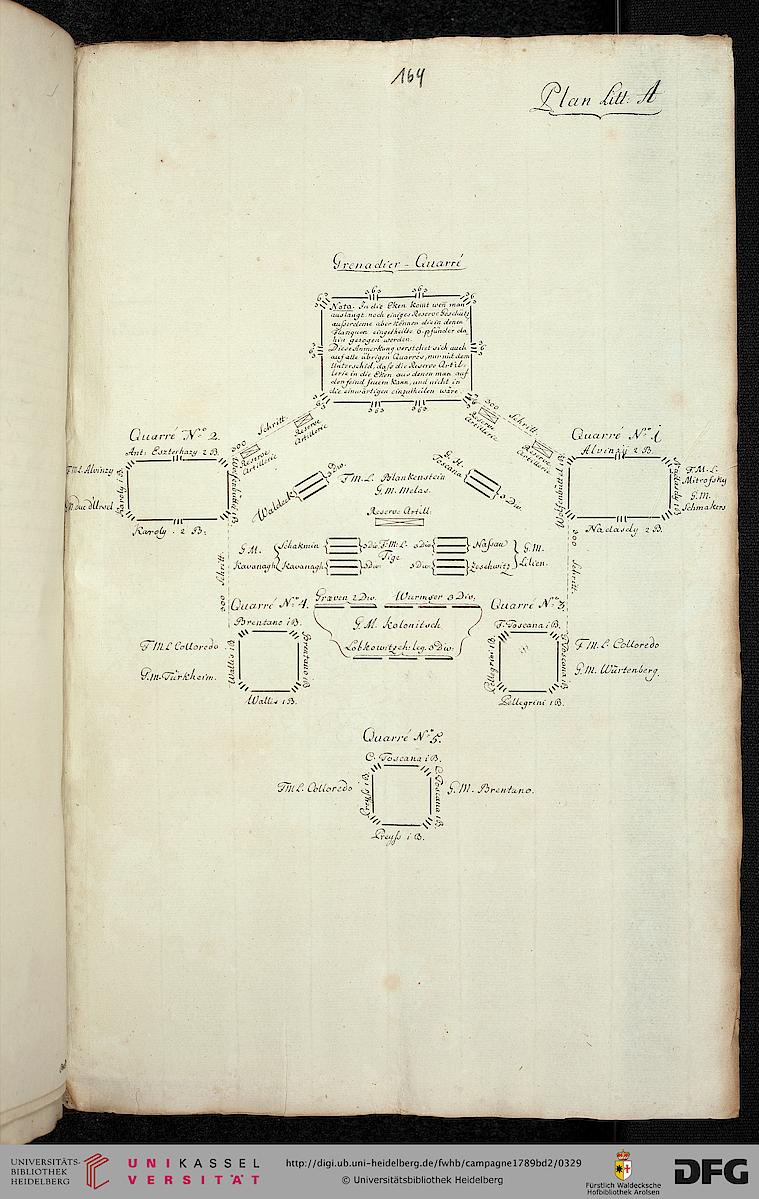 164
Plan Litt: A
Grenadier-Quarré
Nota. In die Eken komt weñ man
auslangt noch einiges Reserve Geschütz
ausserdeme aber können die in denen
Flanquen eingetheilte 6. pfünder da
hin gezogen werden.
Diese Anmerkung verstehet sich auch
auf alle übrigen Quarrés, nur mit dem
Unterschid, daß die Reserve Artil-
lerie in die Eken aus denen man auf
den feind feuern kann, und nicht in
die einwärtigen einzutheilen wäre.
300 Schritt
Reserve Artillerie
Reserve Artillerie
300 Schritt
Reserve Artillerie
Reserve Artillerie
Quarré Nro 2.
Ant: Eszterhazy 2 B.
F.M.L. Alvinzy
Karoly 1 B.
Wolfenbüttel 1 B
Karoly . 2 B:
Quarré Nro 1
Alvinzy 2 B.
Wolfenbüttel 1 B
Nadasdy 1 B
F.M.L.
Mitrofsky
G.M.
Schmakers
Nadasdy 2 B.
Waldeck
3 Div.
F.M.L. Blankenstein
G.M. Melas.
G. H.
Toscana
3 Div.
Reserve Artill:
G.M.
Kavanagh
Schakmin
Kavanagh
3 Div
3 Div.
F.M.L.
Tige
3 Div:
3 Div:
Nassau
Zeschwitz
G.M.
Lilien.
300 Schritt
300 Schritt
Quarré Nro 4.
Græven 2 Div.
Wurmser 3 Div.
Quarré Nro 3.
Brentano 1 B.
G.M. Kolonitsch
F. Toscana 1 B.
Lobkowitsch: leg. 3 Div:
F.M.L Colloredo
G.M. Türkheim.
Wallis 1 B
Brentano 1 B
Wallis 1 B.
Pellegrini 1 B.
F. Toscana 1 B
F.M.L. Colloredo
G.M. Würtenberg.
Pellegrini 1 B.
Quarré Nro 5.
C. Toscana 1 B.
F.M.L. Colloredo
Preyß 1 B.
C. Toscana 1 B.
G.M. Brentano.
Preyß 1 B.
UNIVERSITÄTS-
BIBLIOTHEK
HEIDELBERG
UNIKASSEL
VERSITÄT
http://digi.ub.uni-heidelberg.de/fwhb/campagne1789bd2/0329
© Universitätsbibliothek Heidelberg
Fürstlich Waldecksche
Hofbibliothek Arolsen
DFG